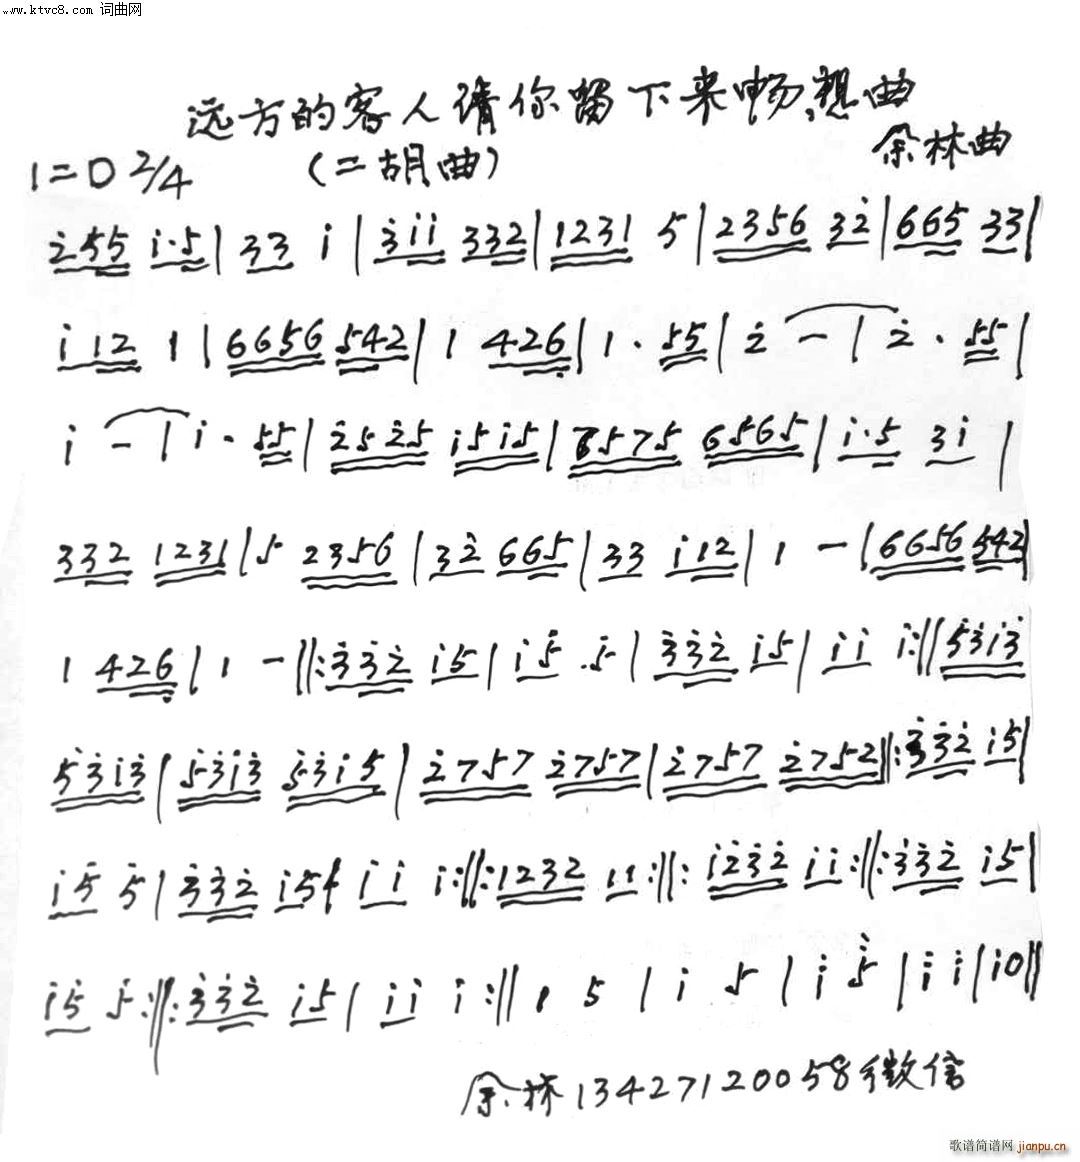 www.ktvc8.com 词曲网
远方的客人请你留下来畅想曲
1=D 2/4 (二胡曲) 余林曲
2̇55 1̇·5|33 1̇|3̇1̇1̇ 332|1231 5|2356 32̇|665 33|
1̇12 1|6656 542|1 426̣|1·55|2̇ -|2̇·55|
1̇ -|1̇·55|2̇52̇5 1̇51̇5|7575 6565|1̇·5 31̇|
332 1231|5 2356|32̇ 665|33 1̇12|1 -|6656 542|
1 426̣|1 -‖:3̇3̇2̇ 1̇5|1̇5̇ 5̇|3̇3̇2̇ 1̇5|1̇1̇ 1̇:‖5̇3̇1̇3̇
5̇3̇1̇3̇|5̇3̇1̇3̇ 5̇3̇1̇5|2̇757 2̇757|2̇757 2̇752‖:3̇3̇2̇ 1̇5|
1̇5̇ 5̇|3̇3̇2̇ 1̇5|1̇1̇ 1̇:‖:1232 11:‖:1̇2̇3̇2̇ 1̇1̇:‖:3̇3̇2̇ 1̇5|
1̇5̇ 5̇:‖:3̇3̇2̇ 1̇5|1̇1̇ 1̇:‖1 5|1̇ 5|1̇ 5̇|1̇ 1̇|1̇0‖
余林13427120058微信
歌谱简谱网 jianpu.cn